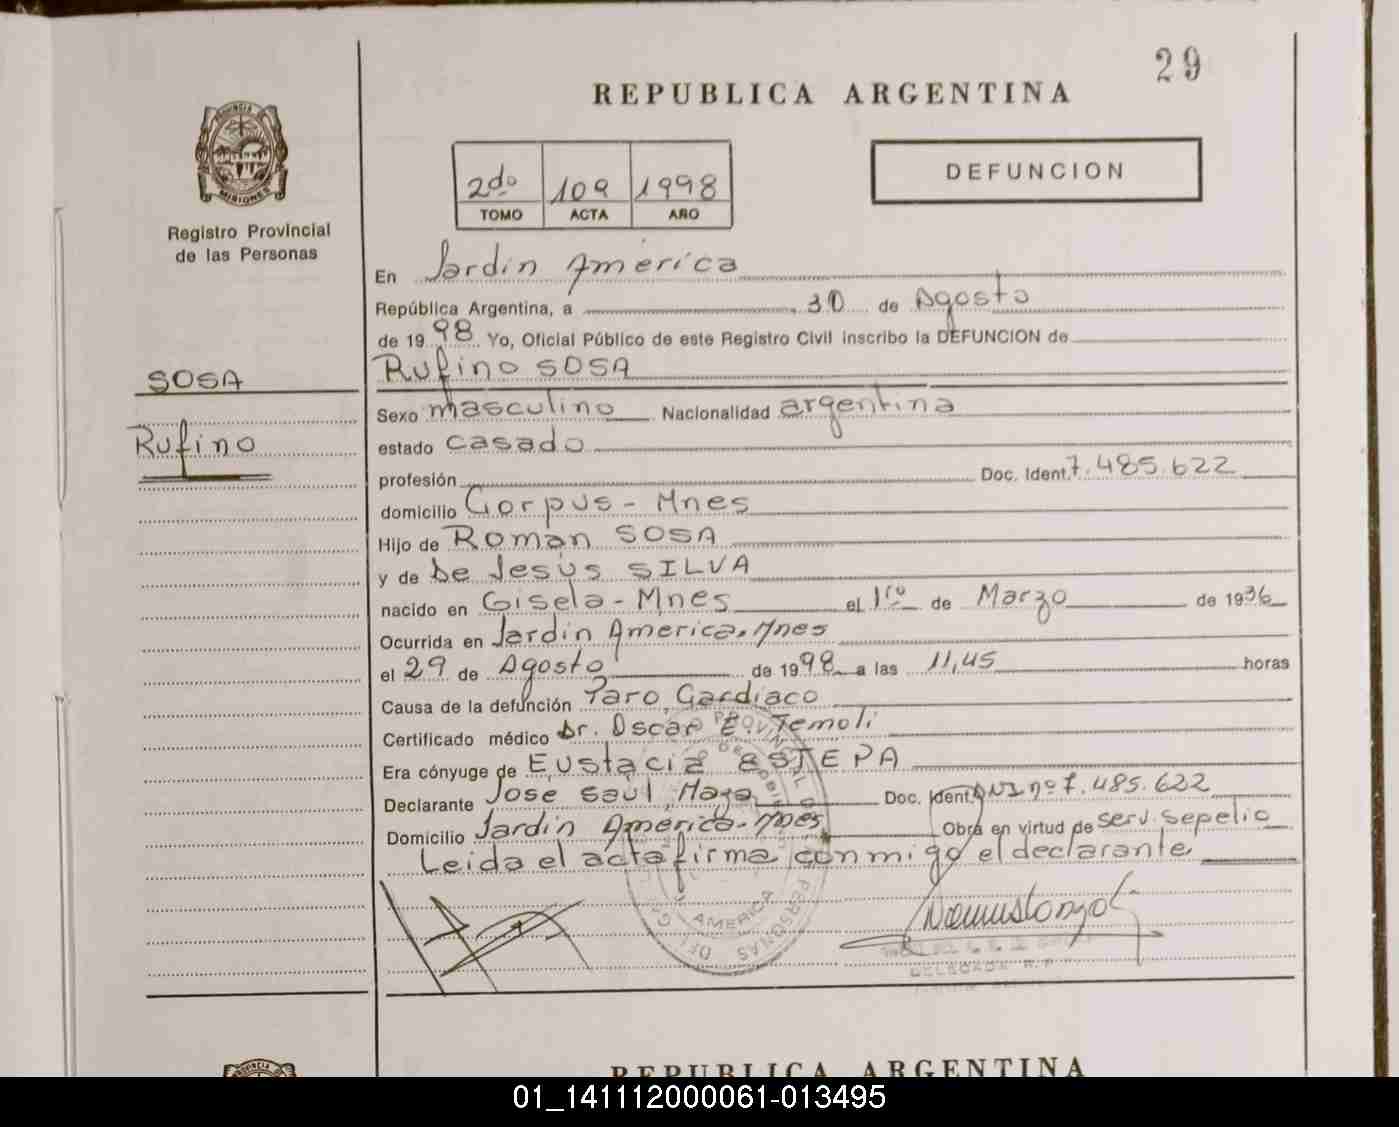 29
REPUBLICA ARGENTINA
PROVINCIA DE
MISIONES
2do 109 1998
TOMO ACTA AÑO
DEFUNCION
Registro Provincial
de las Personas
En Jardin América
República Argentina, a 30 de Agosto
de 1998 Yo, Oficial Público de este Registro Civil inscribo la DEFUNCION de
SOSA
Rufino
Rufino SOSA
Sexo masculino Nacionalidad argentina
estado casado
profesión Doc. Ident. 7.485.622
domicilio Corpus - Mnes
Hijo de Roman SOSA
y de De Jesús SILVA
nacido en Gisela - Mnes el 1ro de Marzo de 1936
Ocurrida en Jardin America. Mnes
el 29 de Agosto de 1998 a las 11,45 horas
Causa de la defunción Paro Cardiaco
Certificado médico Dr. Oscar E. Temoli
Era cónyuge de Eustacia ESTEPA
Declarante José Saúl Maya Doc. Ident. DNI nº 7.485.622
Domicilio Jardin America - Mnes Obra en virtud de serv. sepelio
Leida el acta firma conmigo el declarante
AMERICA
DEL
PERSONAS
DELEGADA R.P.
REPUBLICA ARGENTINA
01_141112000061-013495